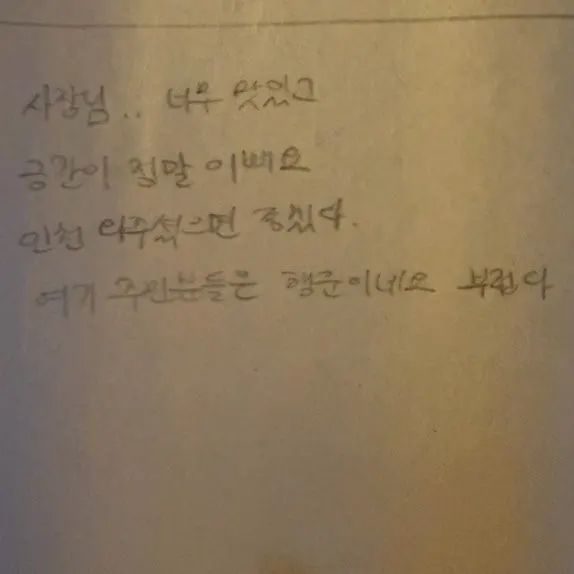 사장님.. 너무 맛있고
공간이 정말 이뻐요
인천 와주셨으면 좋겠다.
여기 주민분들은 행운이네요 부럽다